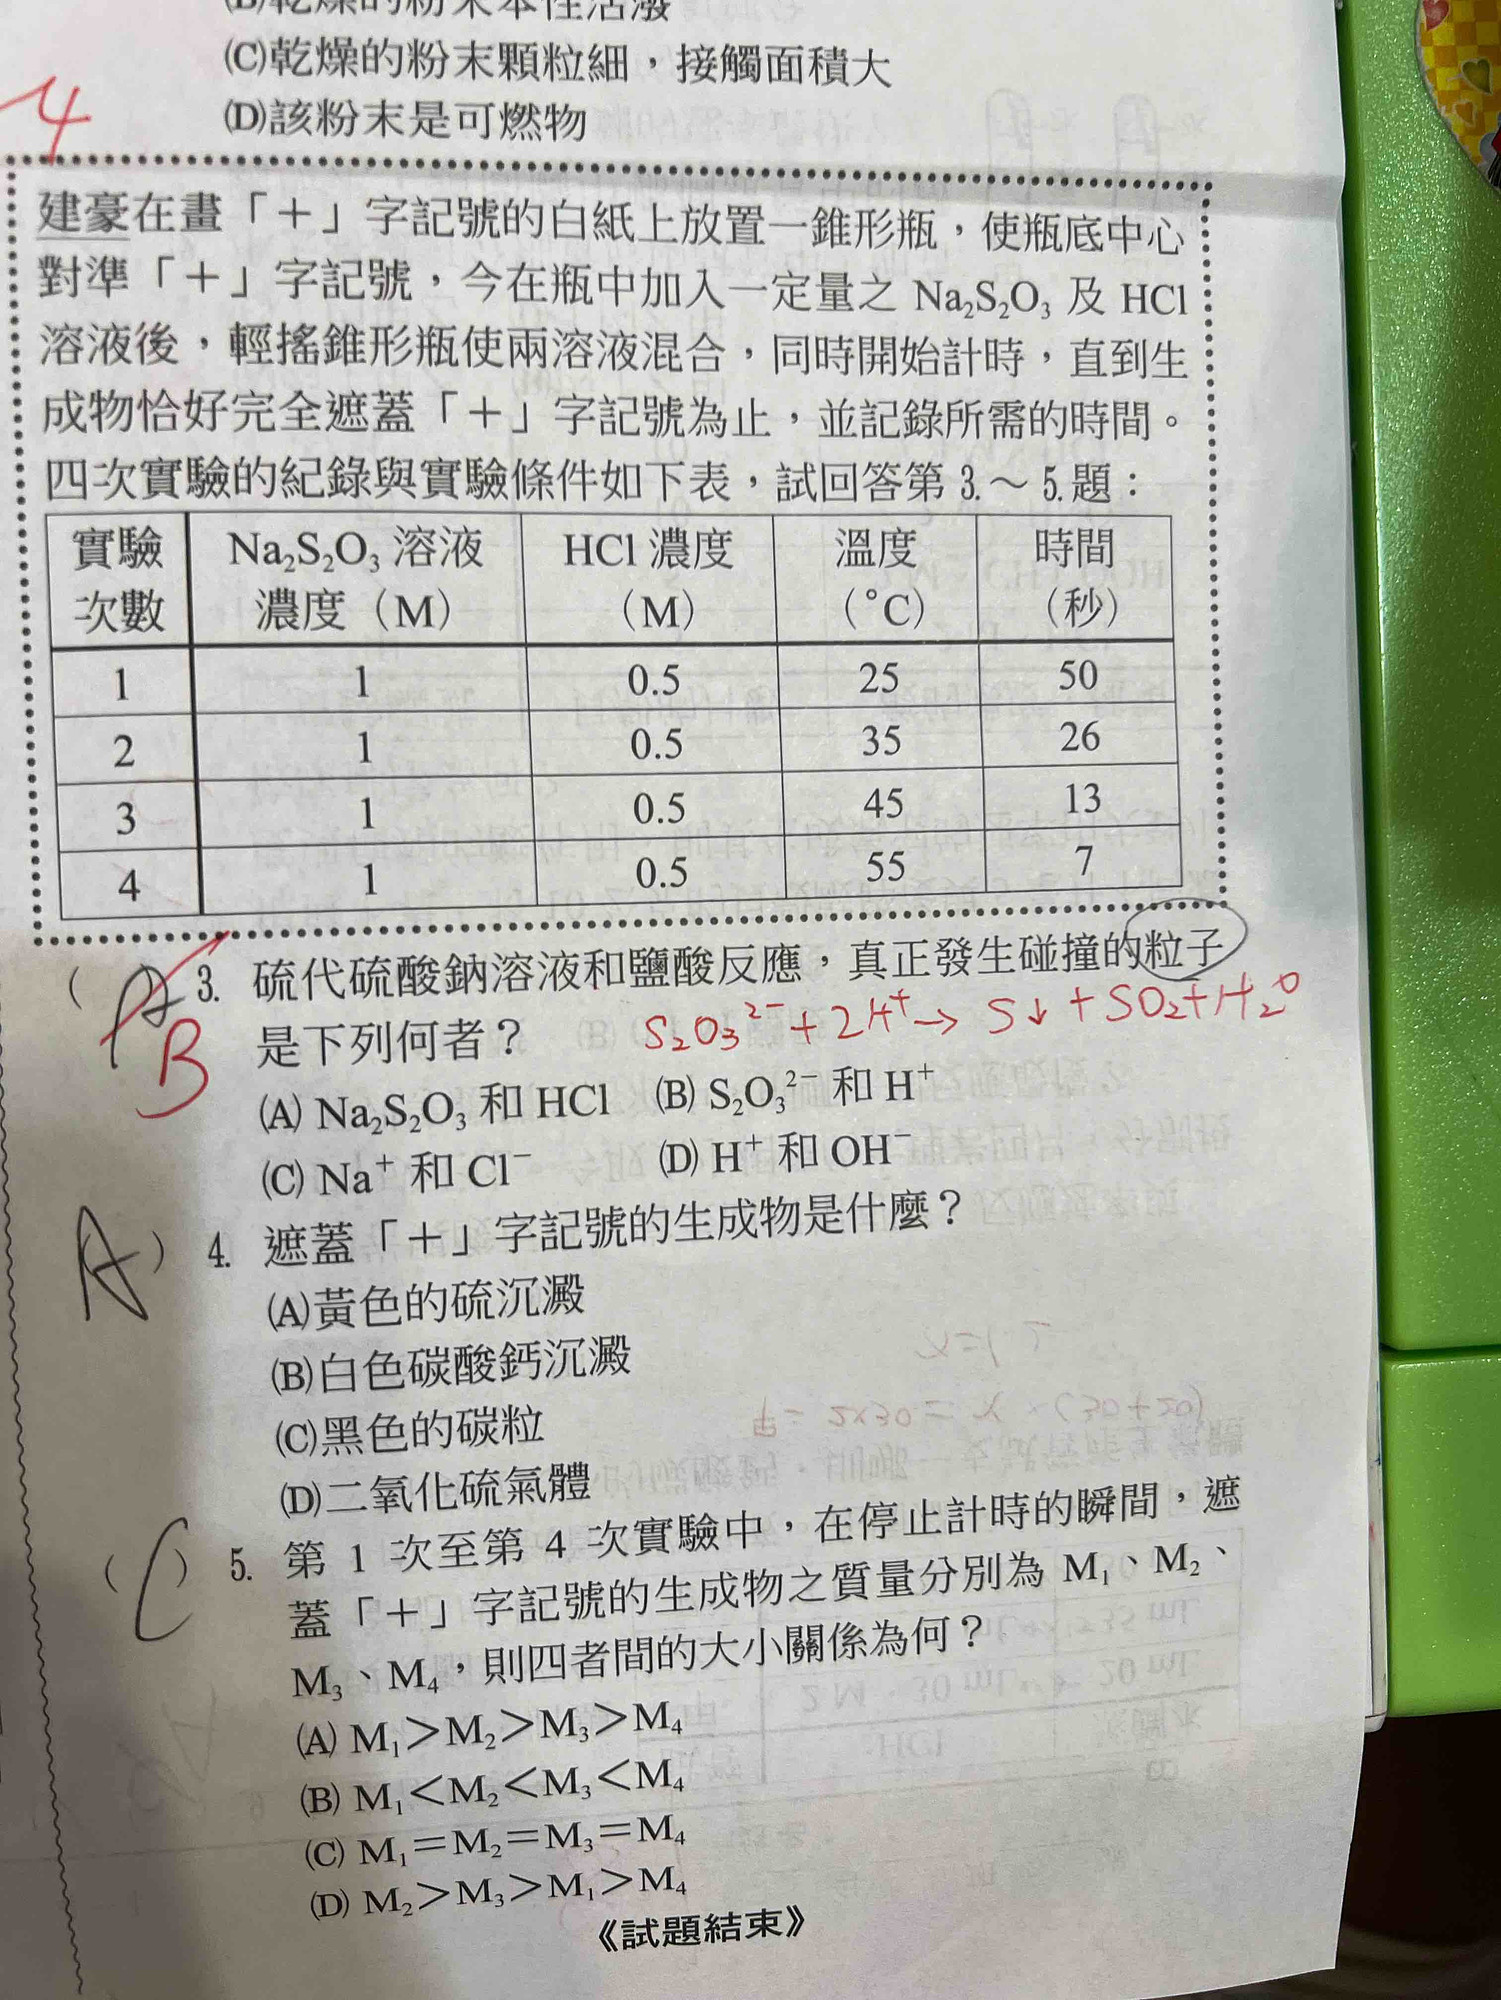 (B)乾燥的粉末本性活潑
(C)乾燥的粉末顆粒細，接觸面積大
(D)該粉末是可燃物
4
建豪在畫「＋」字記號的白紙上放置一錐形瓶，使瓶底中心
對準「＋」字記號，今在瓶中加入一定量之 Na₂S₂O₃ 及 HCl
溶液後，輕搖錐形瓶使兩溶液混合，同時開始計時，直到生
成物恰好完全遮蓋「＋」字記號為止，並記錄所需的時間。
四次實驗的紀錄與實驗條件如下表，試回答第 3.～ 5.題：
實驗次數 Na₂S₂O₃ 溶液濃度（M） HCl 濃度（M） 溫度（°C） 時間（秒）
1 1 0.5 25 50
2 1 0.5 35 26
3 1 0.5 45 13
4 1 0.5 55 7
( A ) 3. 硫代硫酸鈉溶液和鹽酸反應，真正發生碰撞的粒子
B 是下列何者？ S₂O₃²⁻ + 2H⁺ → S↓ + SO₂ + H₂O
(A) Na₂S₂O₃ 和 HCl (B) S₂O₃²⁻ 和 H⁺
(C) Na⁺ 和 Cl⁻ (D) H⁺ 和 OH⁻
(A) 4. 遮蓋「＋」字記號的生成物是什麼？
(A)黃色的硫沉澱
(B)白色碳酸鈣沉澱
(C)黑色的碳粒
(D)二氧化硫氣體
(C) 5. 第 1 次至第 4 次實驗中，在停止計時的瞬間，遮
蓋「＋」字記號的生成物之質量分別為 M₁、M₂、
M₃、M₄，則四者間的大小關係為何？
(A) M₁＞M₂＞M₃＞M₄
(B) M₁＜M₂＜M₃＜M₄
(C) M₁＝M₂＝M₃＝M₄
(D) M₂＞M₃＞M₁＞M₄
《試題結束》